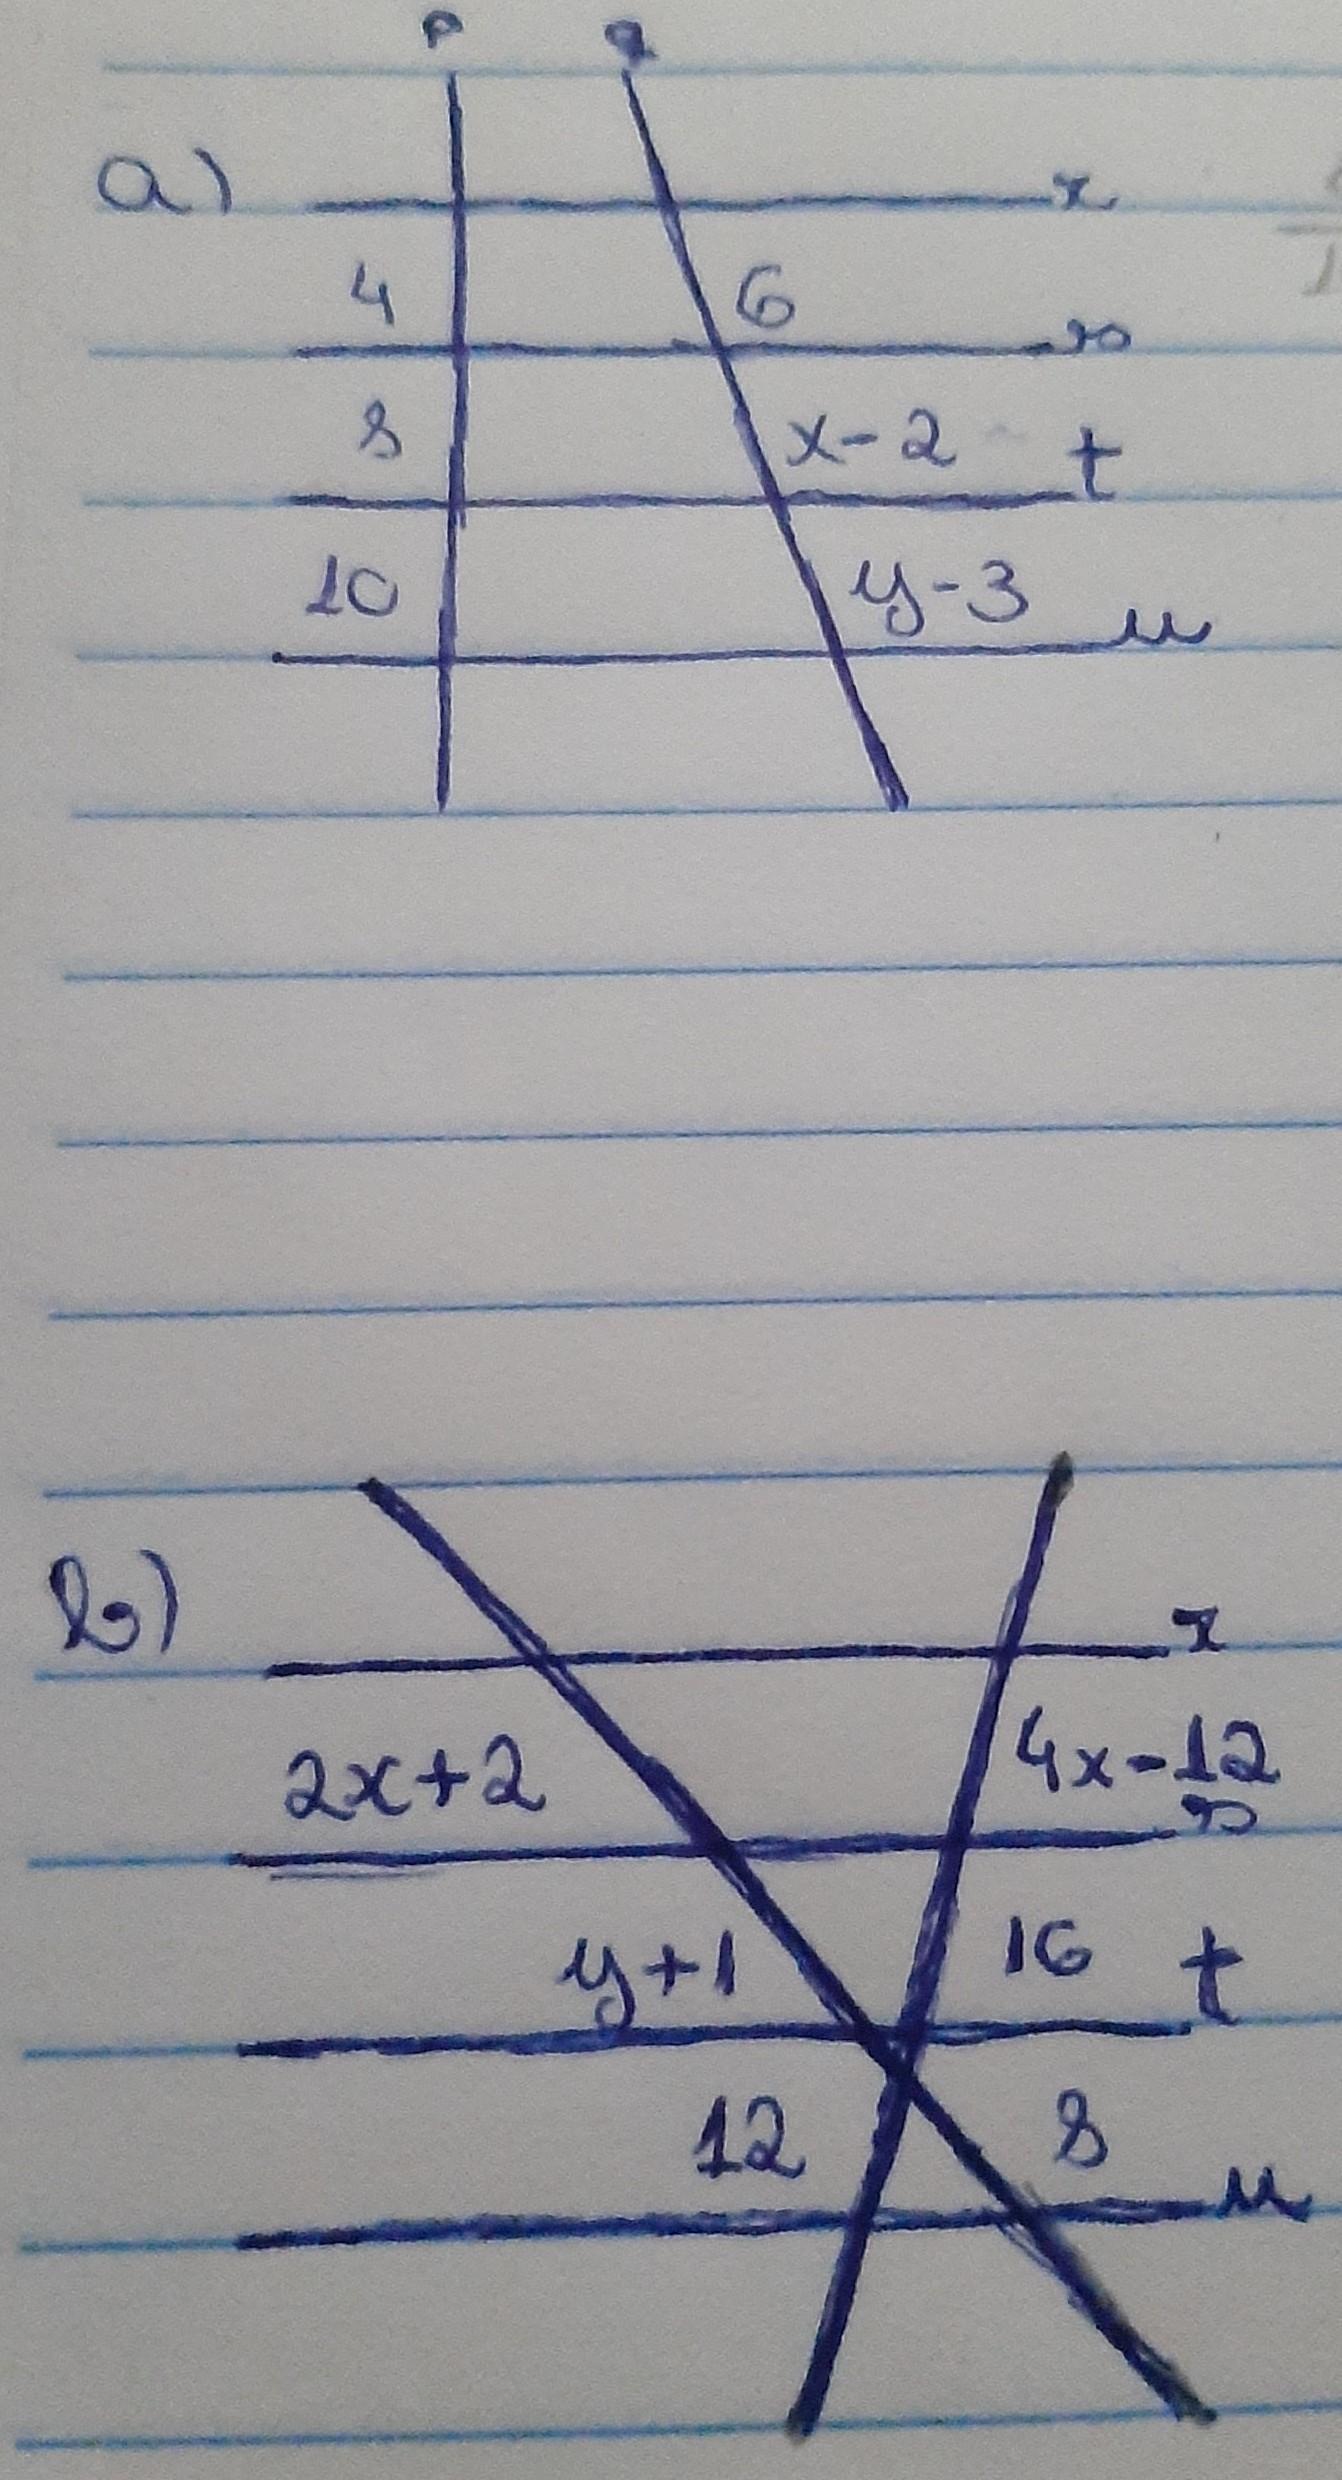 p q
a) r
4 6 s
8 x-2 t
10 y-3 u
b) r
2x+2 4x-12
s
y+1 16 t
12 8 u